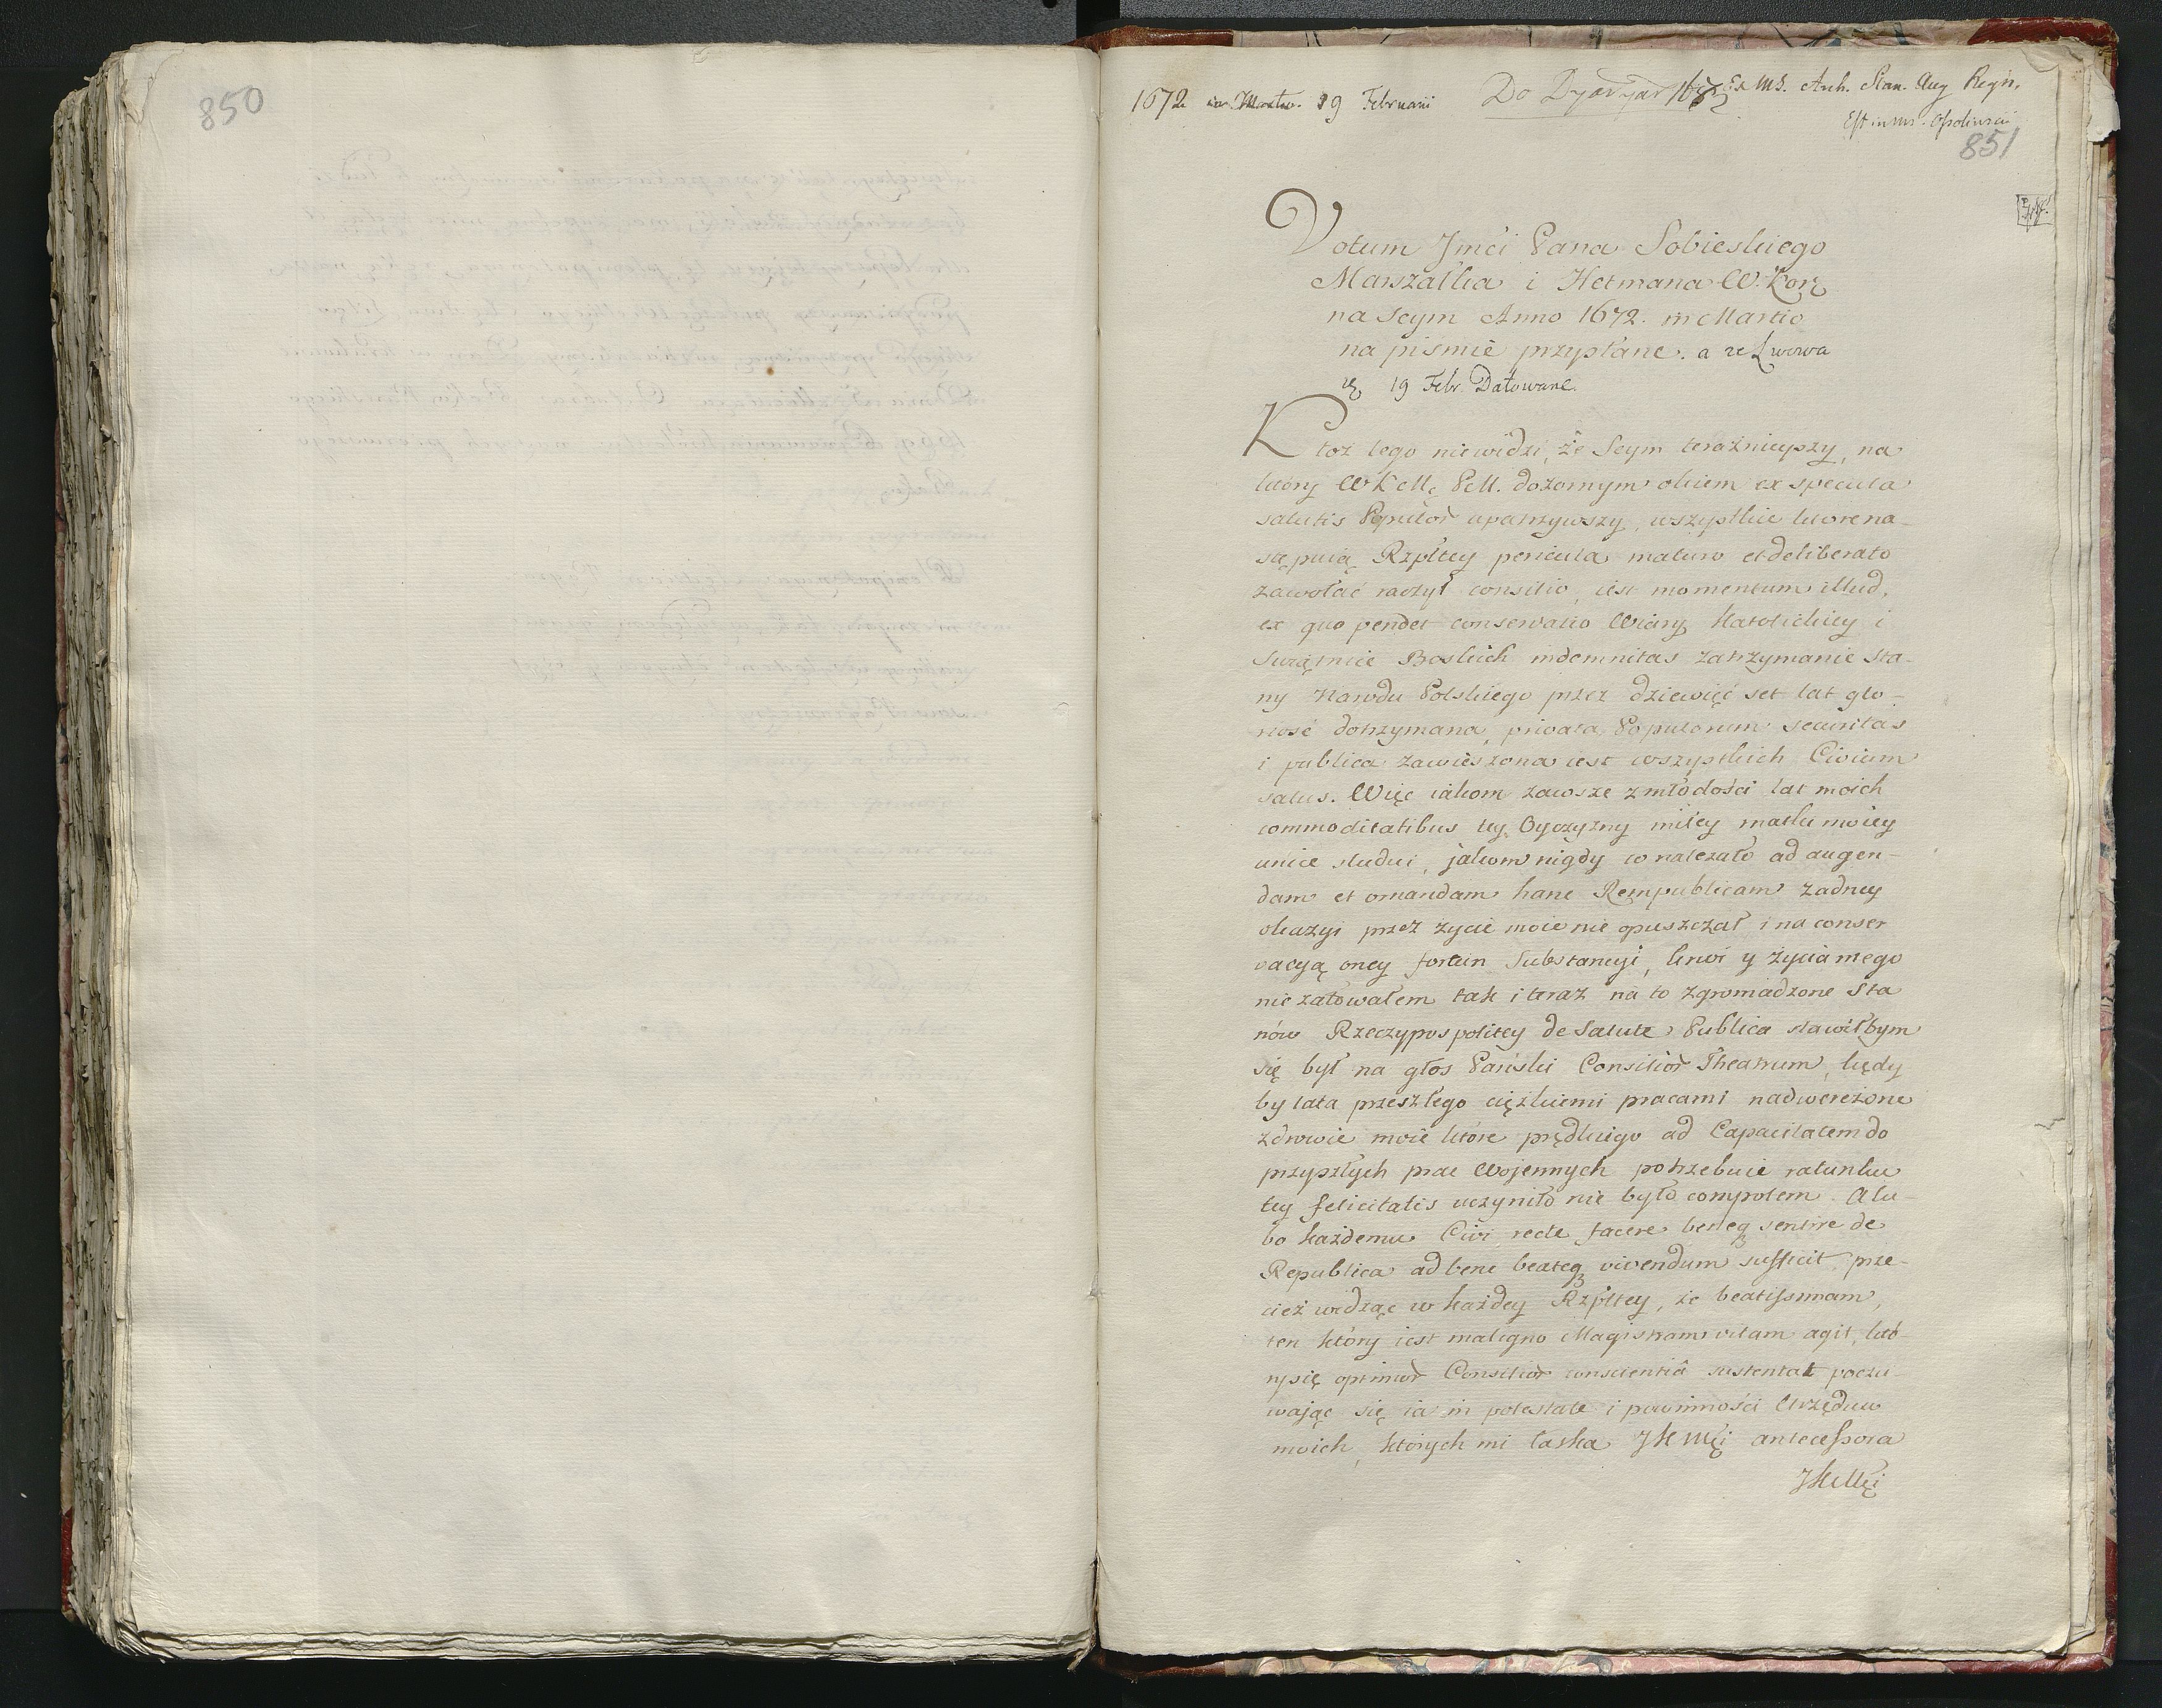 850
1672 in Martio. 19 Februarii
Do Dyaryar 1672
Ex MS. Arch. Stan. Aug Regis.
Est in ms. Ossolinscii
851
Votum Jmći Pana Sobieskiego
Marszałka i Hetmana W. Korゥ
na Seym Anno 1672. in Martio
na pismie przysłane. a ze Lwowa
19 Febr. Datowane.
Ktoż tego niewidzi, że Seym teraźnieyszy, na
ktory W K Mć P M. dozornym okiem ex specula
salutis Populor upatrzywszy, wszystkie ktore na-
stępuią Rzpltey pericula maturo et deliberato
zawołać raczył consilio, iest momentum illud,
ex quo pendet conservatio Wiary Katolickiey i
Swiątnic Boskich indemnitas zatrzymanie sła-
wy Narodu Polskiego przez dziewięć set lat gło-
nosć dotrzymana, privata Populorum securitas
i publica zawieszona iest wszystkich Civium
salus. Więc iakom zawsze z młodości lat moich
commoditatibus tey Oyczyzny miłey matki moiey
unice studui, jakom nigdy co należało ad augen-
dam et ornandam hanc Rempublicam żadney
okazyi przez życie moie nie opuszczał i na conser
vacyą oney fortun Substancyi, krwi y życia mego
nie żałowałem tak i teraz na to zgromadzone Sta
nów Rzeczypospolitey de Salute Publica stawiłbym
się był na głos Pański Consilior Theatrum, kiedy
by lata przeszłego ciężkiemi pracami nadwerężone
zdrowie moie które prędkiego ad Capacitatem do
przyszłych prac Wojennych potrzebuie ratunku
tey felicitatis uczyniło nie było compotem. A lu-
bo każdemu Civi recte facere beneq sentire de
Republica ad bene beateq vivendum sufficit prze-
cież widząc w każdey Rzpltey, że beatissimam,
ten który iest maligno Magistram vitam agit, któ-
ry się optimor Consilior conscientiâ sustentat poczu-
wając się ia in potestate i powinności Urzędów
moich, których mi łaska JKMći antecessora
JKMći